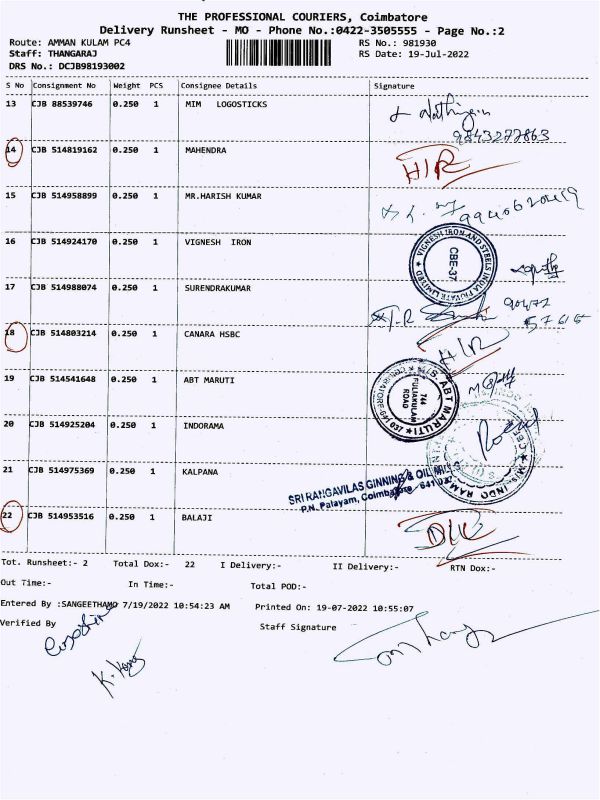 THE PROFESSIONAL COURIERS, Coimbatore
Delivery Runsheet - MO - Phone No.:0422-3505555 - Page No.:2
Route: AMMAN KULAM PC4 RS No.: 981930
Staff: THANGARAJ RS Date: 19-Jul-2022
DRS No.: DCJB98193002
S No Consignment No Weight PCS Consignee Details Signature
13 CJB 88539746 0.250 1 MIM LOGOSTICKS
9843277863
14 CJB 514819162 0.250 1 MAHENDRA H/R
15 CJB 514958899 0.250 1 MR.HARISH KUMAR
16 CJB 514924170 0.250 1 VIGNESH IRON
VIGNESH IRON AND STEELS INDIA PRIVATE LIMITED
CBE-37
17 CJB 514988074 0.250 1 SURENDRAKUMAR
18 CJB 514803214 0.250 1 CANARA HSBC H/R
19 CJB 514541648 0.250 1 ABT MARUTI
M/S. ABT MARUTI
744
PULIAKULAM
ROAD
20 CJB 514925204 0.250 1 INDORAMA
M/s. INDO RAMA
21 CJB 514975369 0.250 1 KALPANA
SRI RANGAVILAS GINNING & OIL MILLS
P.N. Palayam, Coimbatore - 641 037
22 CJB 514953516 0.250 1 BALAJI D/L
Tot. Runsheet:- 2 Total Dox:- 22 I Delivery:- II Delivery:- RTN Dox:-
Out Time:- In Time:- Total POD:-
Entered By :SANGEETHAMO 7/19/2022 10:54:23 AM Printed On: 19-07-2022 10:55:07
Verified By Staff Signature